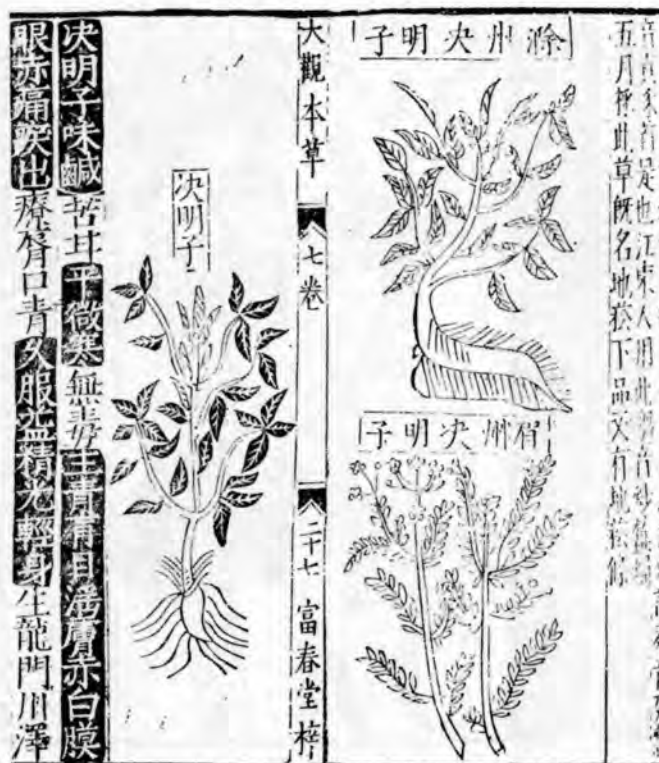 是也江東人用此
五月採此草既名地菘下品又有地菘條
滁州决明子
眉州决明子
大觀本草 七卷 二十七 富春堂梓
决明子
决明子味鹹苦甘平微寒無毒主青盲目淫膚赤白膜
眼赤痛淚出療脣口青久服益精光輕身生龍門川澤